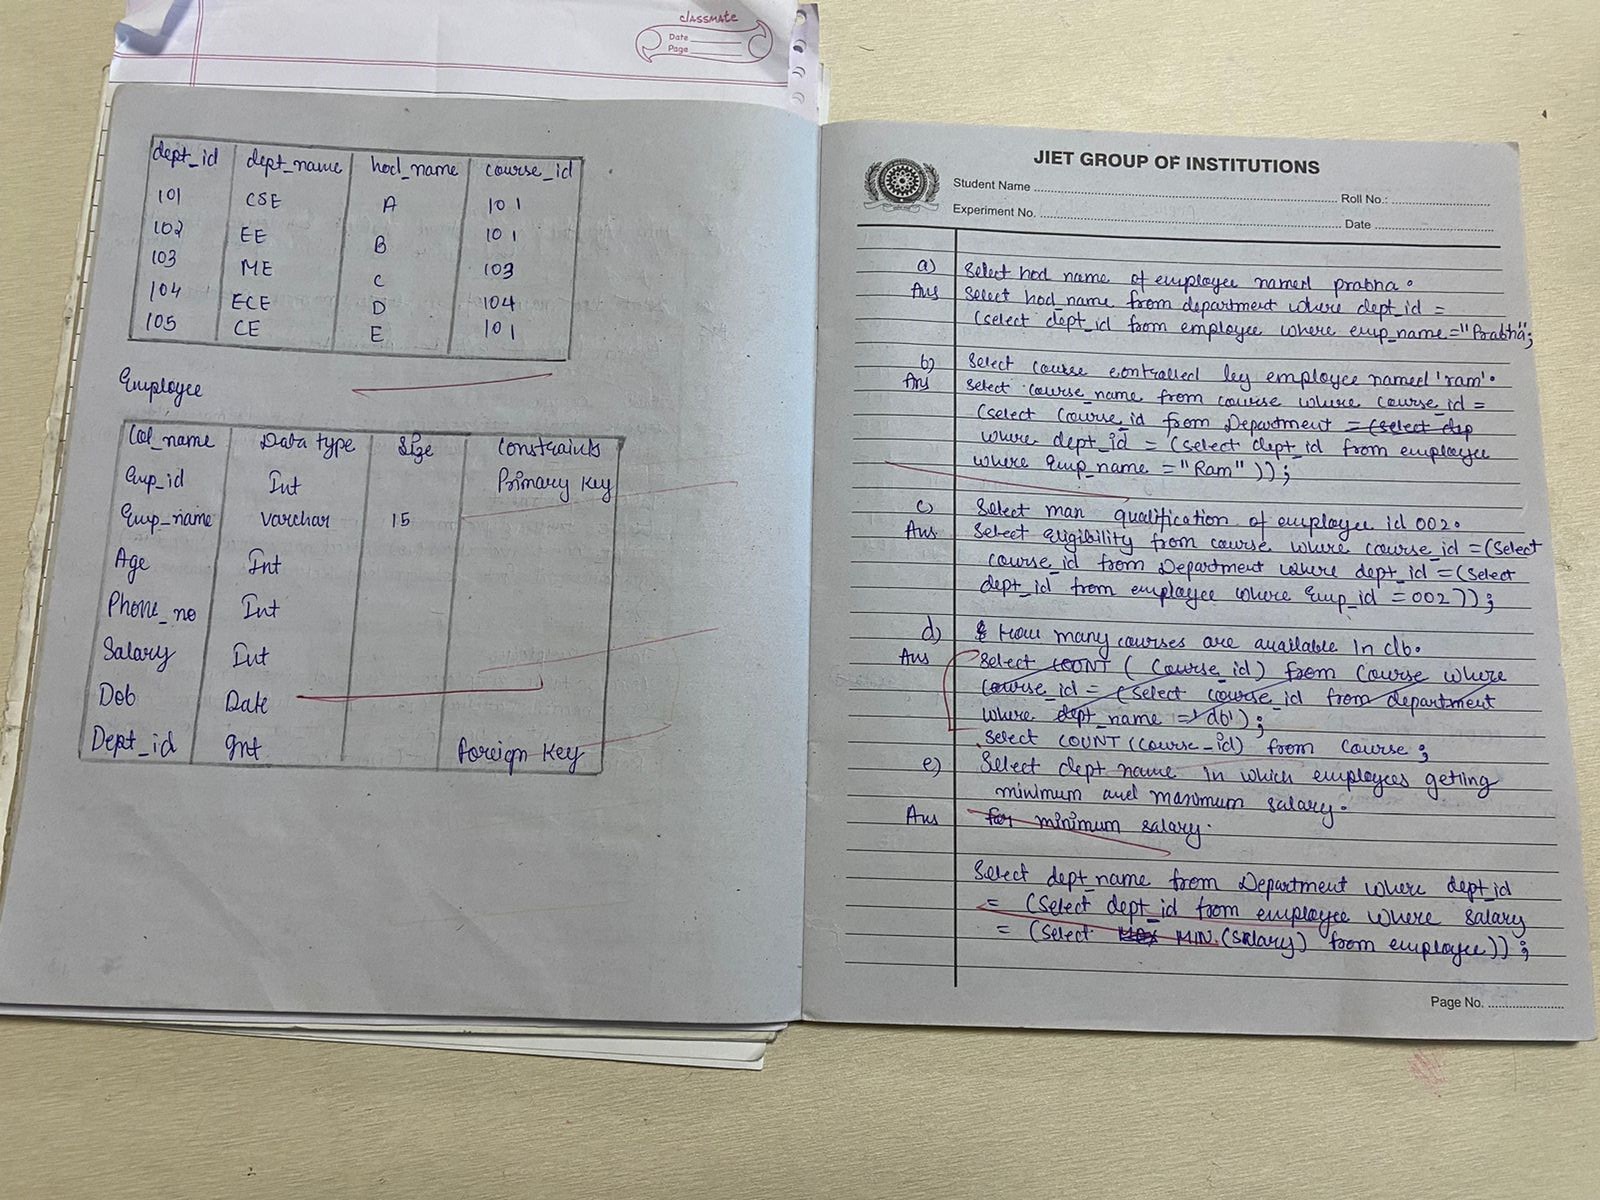 classmate
Date
Page
dept_id dept_name hod_name course_id
101 CSE A 101
102 EE B 101
103 ME C 103
104 ECE D 104
105 CE E 101
Employee
Col_name Data type Size Constraints
Emp_id Int Primary Key
Emp_name Varchar 15
Age Int
Phone_no Int
Salary Int
Dob Date
Dept_id Int Foreign Key
JIET GROUP OF INSTITUTIONS
Student Name Roll No.:
Experiment No. Date
a) Select hod name of employee named prabha.
Ans Select hod_name from department where dept_id =
(select dept_id from employee where emp_name="Prabha";
b) Select course controlled by employee named 'ram'.
Ans Select course_name from course where course_id =
(select course_id from Department = (select dep
where dept_id = (select dept_id from employee
where Emp_name = "Ram"));
c) Select man qualification of employee id 002.
Ans Select eligibility from course where course_id = (Select
course_id from Department where dept_id = (Select
dept_id from employee where Emp_id = 002));
d) How many courses are available in db.
Ans Select COUNT (Course_id) from Course where
Course_id = (Select course_id from department
where dept_name = 'db');
Select COUNT (Course_id) from Course;
e) Select dept name in which employees getting
minimum and maximum salary.
Ans for minimum salary.
Select dept_name from Department where dept_id
= (Select dept_id from employee where salary
= (Select MIN.(Salary) from employee));
Page No.